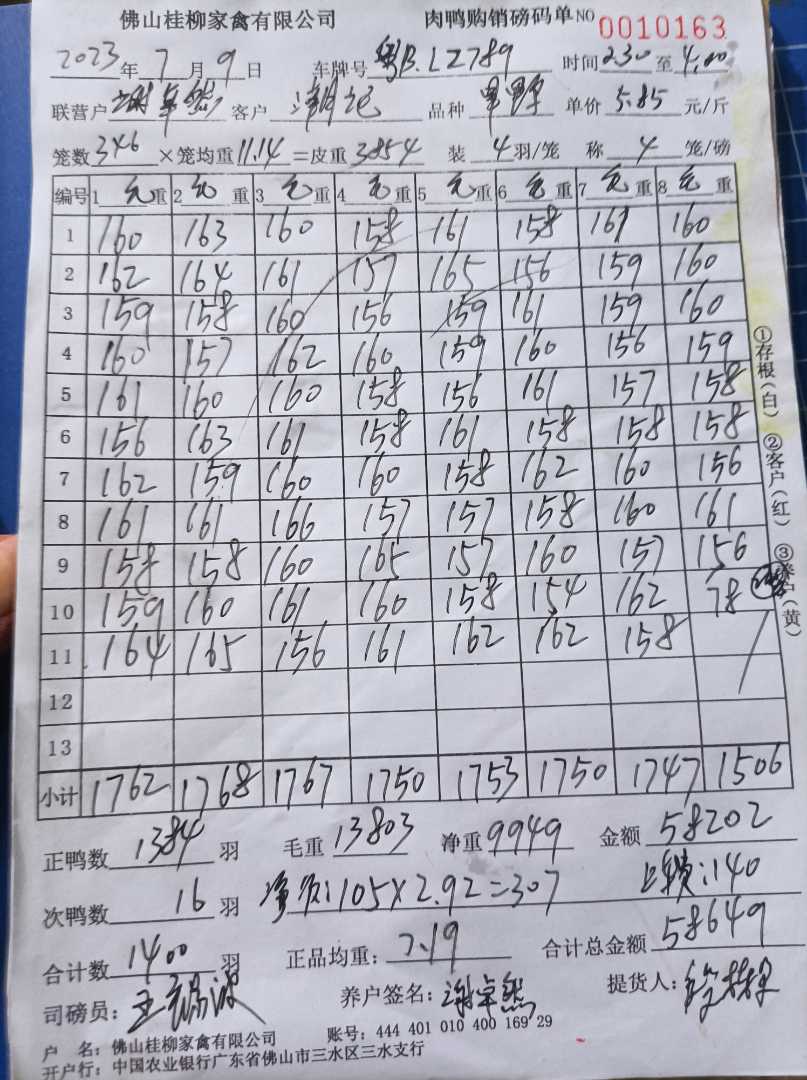 佛山桂柳家禽有限公司 肉鸭购销磅码单 NO 0010163
2023年7月9日 车牌号 粤B.LZ789 时间 2:30 至 4:00
联营户 谢卓然 客户 记 品种 单价 5.85 元/斤
笼数 346 ×笼均重 11.14 =皮重 3854 装 4 羽/笼 称 4 笼/磅
编号 1 毛重 2 毛重 3 毛重 4 毛重 5 毛重 6 毛重 7 毛重 8 毛重
1 160 163 160 158 161 158 161 160
2 162 164 161 157 165 156 159 160
3 159 158 160 156 159 161 159 160
4 160 157 162 160 159 160 156 159
5 161 160 160 158 156 161 157 158
6 156 163 161 158 161 158 158 158
7 162 159 160 160 158 162 160 156
8 161 161 166 157 157 158 160 161
9 158 158 160 165 157 160 157 156
10 159 160 161 160 158 154 162 78
11 164 165 156 161 162 162 158 /
12
13
小计 1762 1768 1767 1750 1753 1750 1747 1506
正鸭数 1384 羽 毛重 13803 净重 9949 金额 58202
次鸭数 16 羽 净次:105×2.92=307 :140
合计数 1400 羽 正品均重: 7.19 合计总金额 58649
司磅员: 王 养户签名: 谢卓然 提货人:
户 名: 佛山桂柳家禽有限公司 账号: 444 401 010 400 169 29
开户行: 中国农业银行广东省佛山市三水区三水支行
①存根(白) ②客户(红) ③养户(黄)